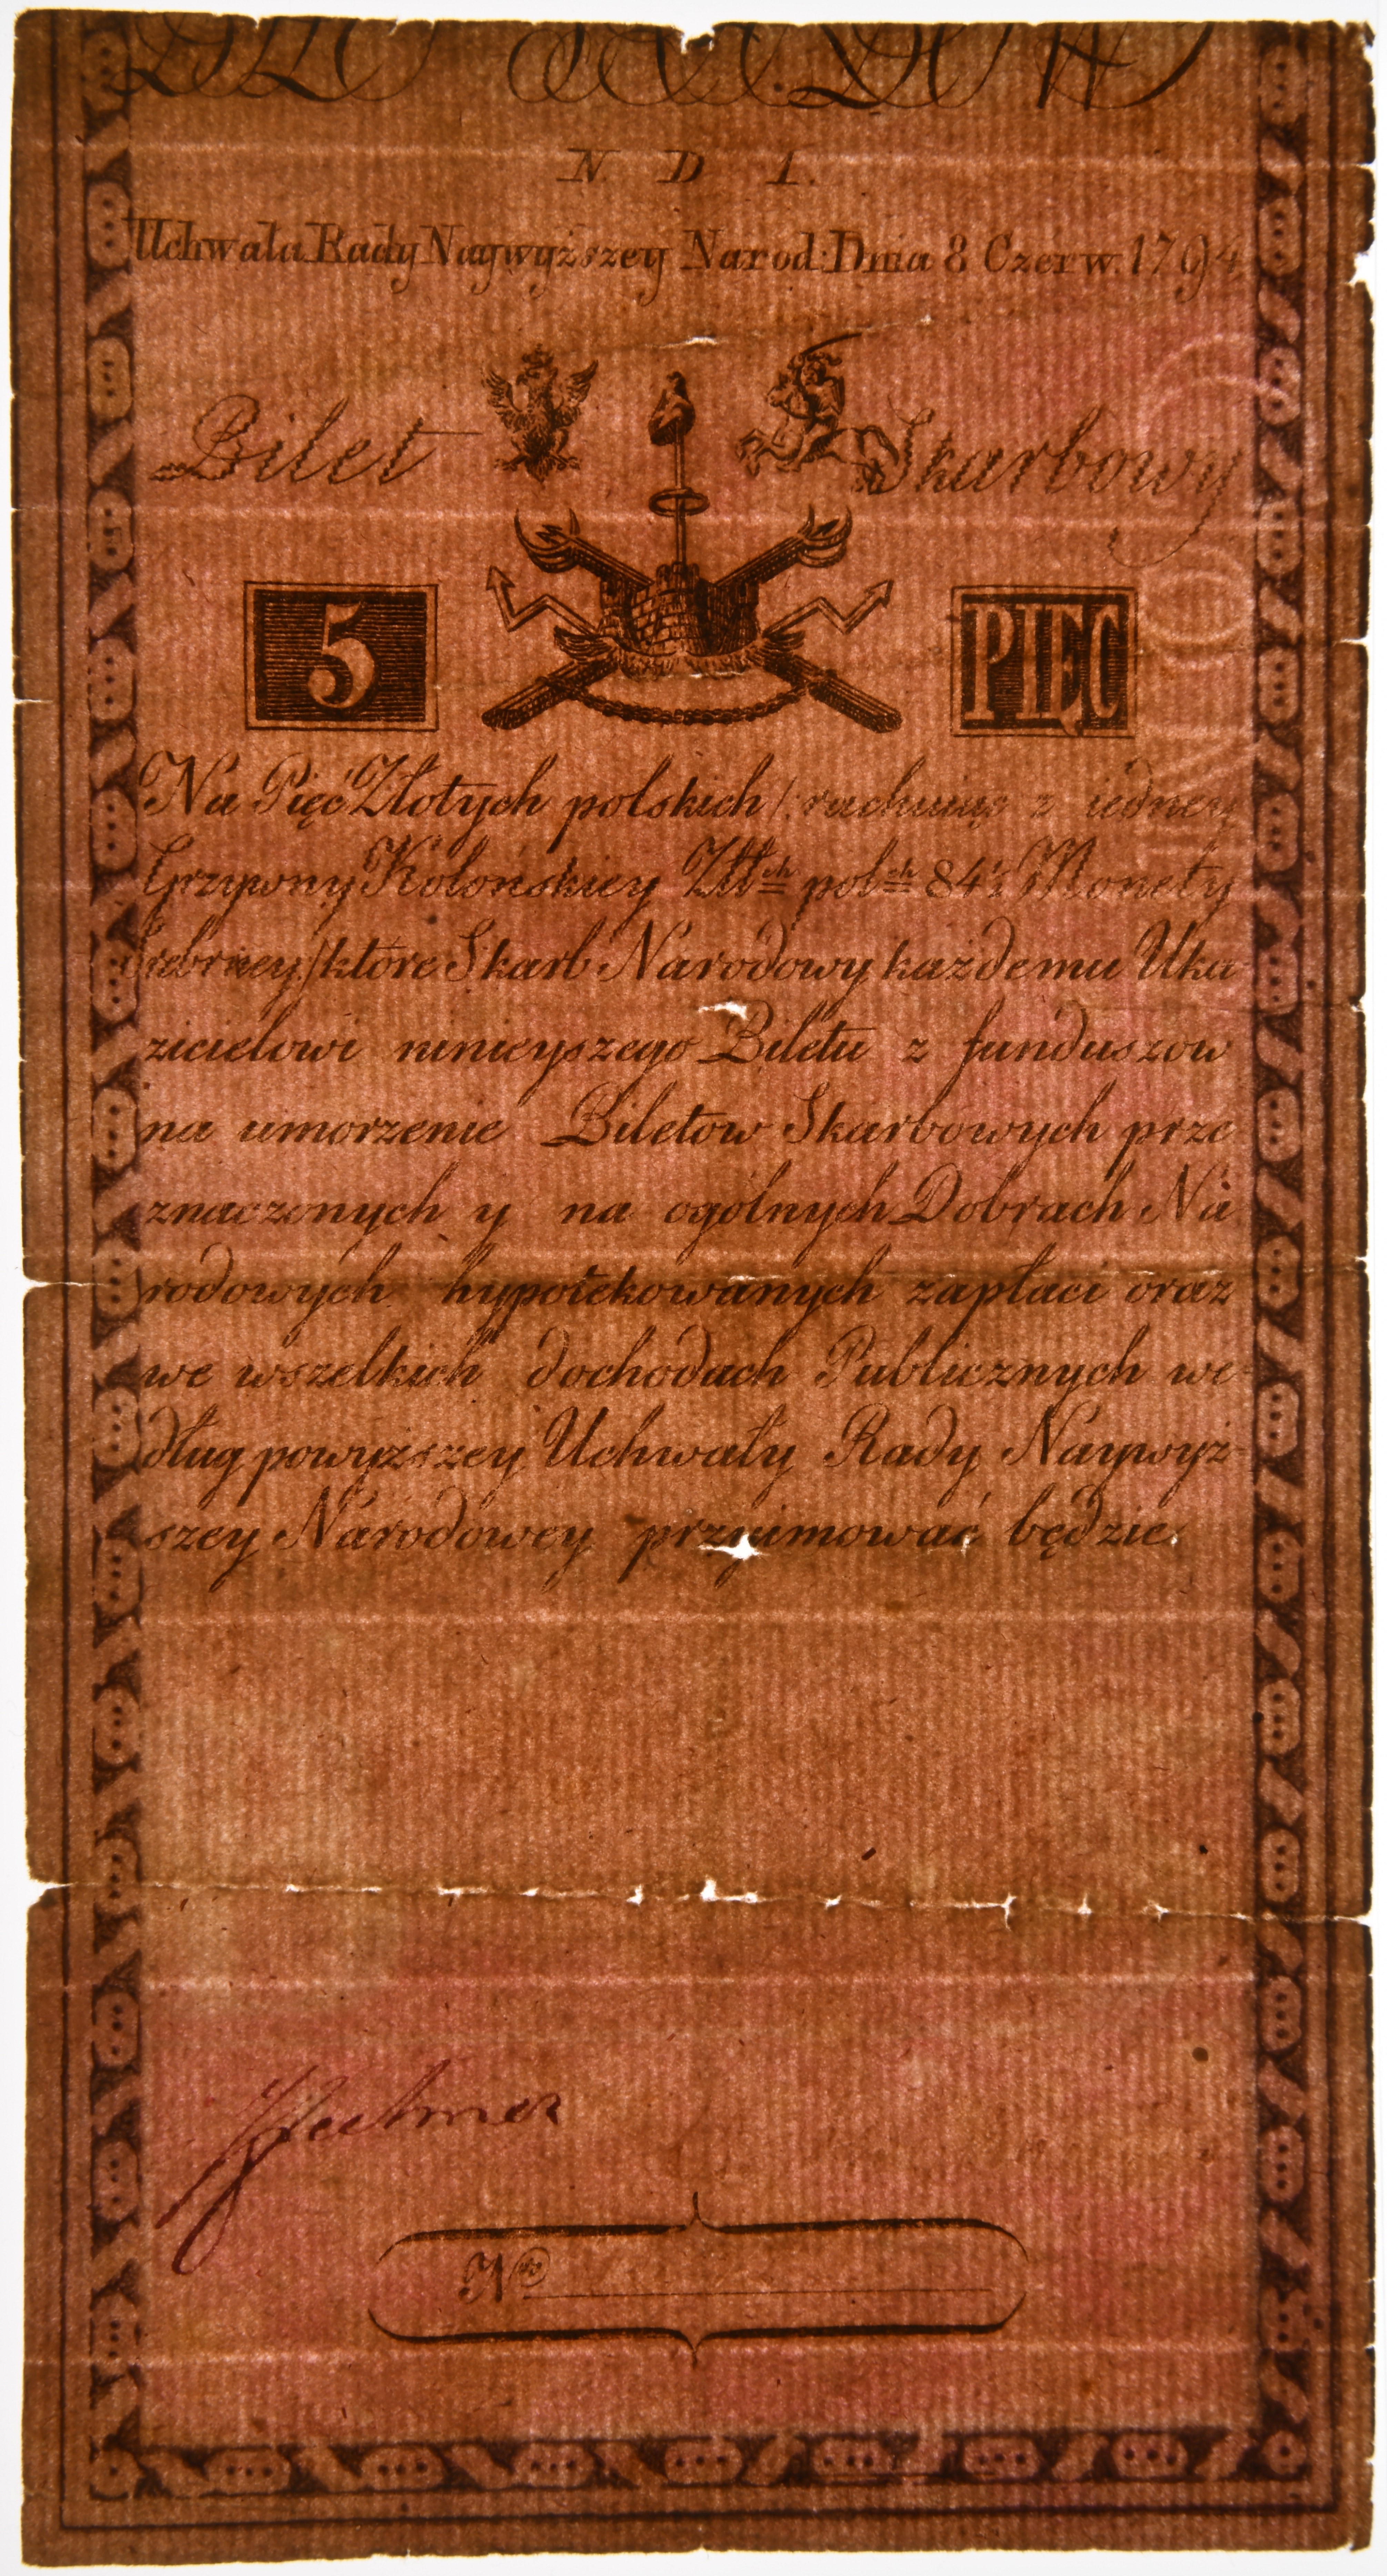 N. D. 1.
Uchwała Rady Naywyższey Narod: Dnia 8 Czerw. 1794
Bilet Skarbowy
5 PIĘĆ
Na Pięć Złotych polskich /: rachuiąc z iedney
Grzywny Kolońskiey Złł<sup>ch</sup> pol<sup>ch</sup> 84½ Monety
Srebrney :/ które Skarb Narodowy każdemu Uka-
zicielowi ninieyszego Biletu z funduszow
na umorzenie Biletow Skarbowych prze
znaczonych y na ogólnych Dobrach Na
rodowych hypotekowanych zapłaci oraz
we wszelkich dochodach Publicznych we-
dług powyższey Uchwały Rady Naywyż-
szey Narodowey przyimować będzie.
N<sup>ro</sup>